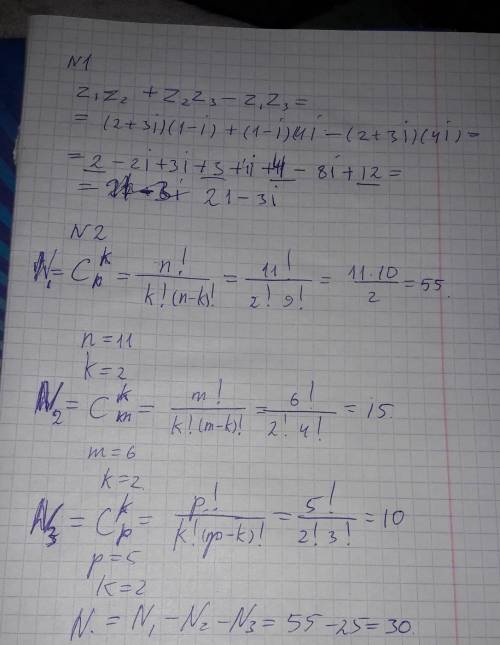 N1
z₁z₂ + z₂z₃ - z₁z₃ =
= (2+3i)(1-i) + (1-i)4i - (2+3i)(4i) =
= 2 - 2i + 3i + 3 + 4i + 4 - 8i + 12 =
= 21 - 3i
N2
N₁ = Cₙᵏ = n! / k!(n-k)! = 11! / 2! 9! = 11·10 / 2 = 55.
n = 11
k = 2
N₂ = Cₘᵏ = m! / k!(m-k)! = 6! / 2! 4! = 15
m = 6
k = 2
N₃ = Cₚᵏ = p! / k!(p-k)! = 5! / 2! 3! = 10
p = 5
k = 2
N. = N₁ - N₂ - N₃ = 55 - 25 = 30.